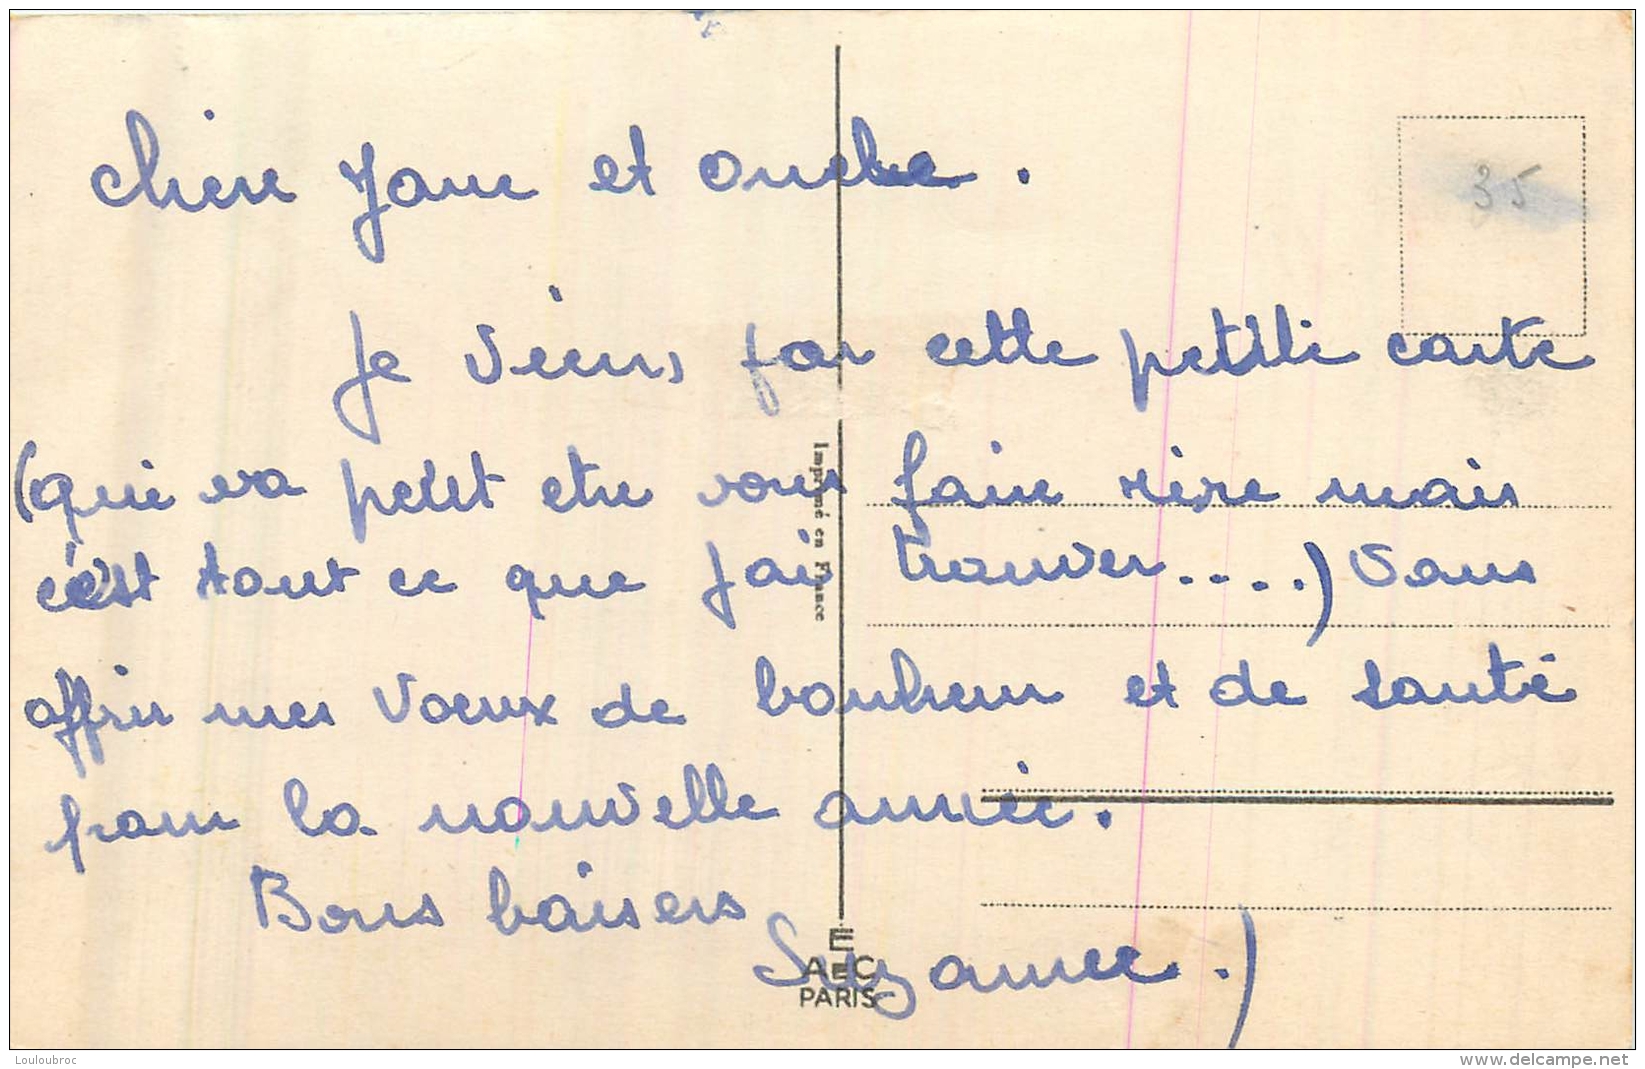 chère Jane et oncle.
35
Je viens par cette petitte carte
(qui va petut etre vous faire rire mais
c'est tout ce que j'ai trouver....) vous
offrir mes voeux de bonheur et de santé
pour la nouvelle année.
Bons baisers
Suzanne.)
Imprimé en France
E
AEC
PARIS
Louloubroc
www.delcampe.net